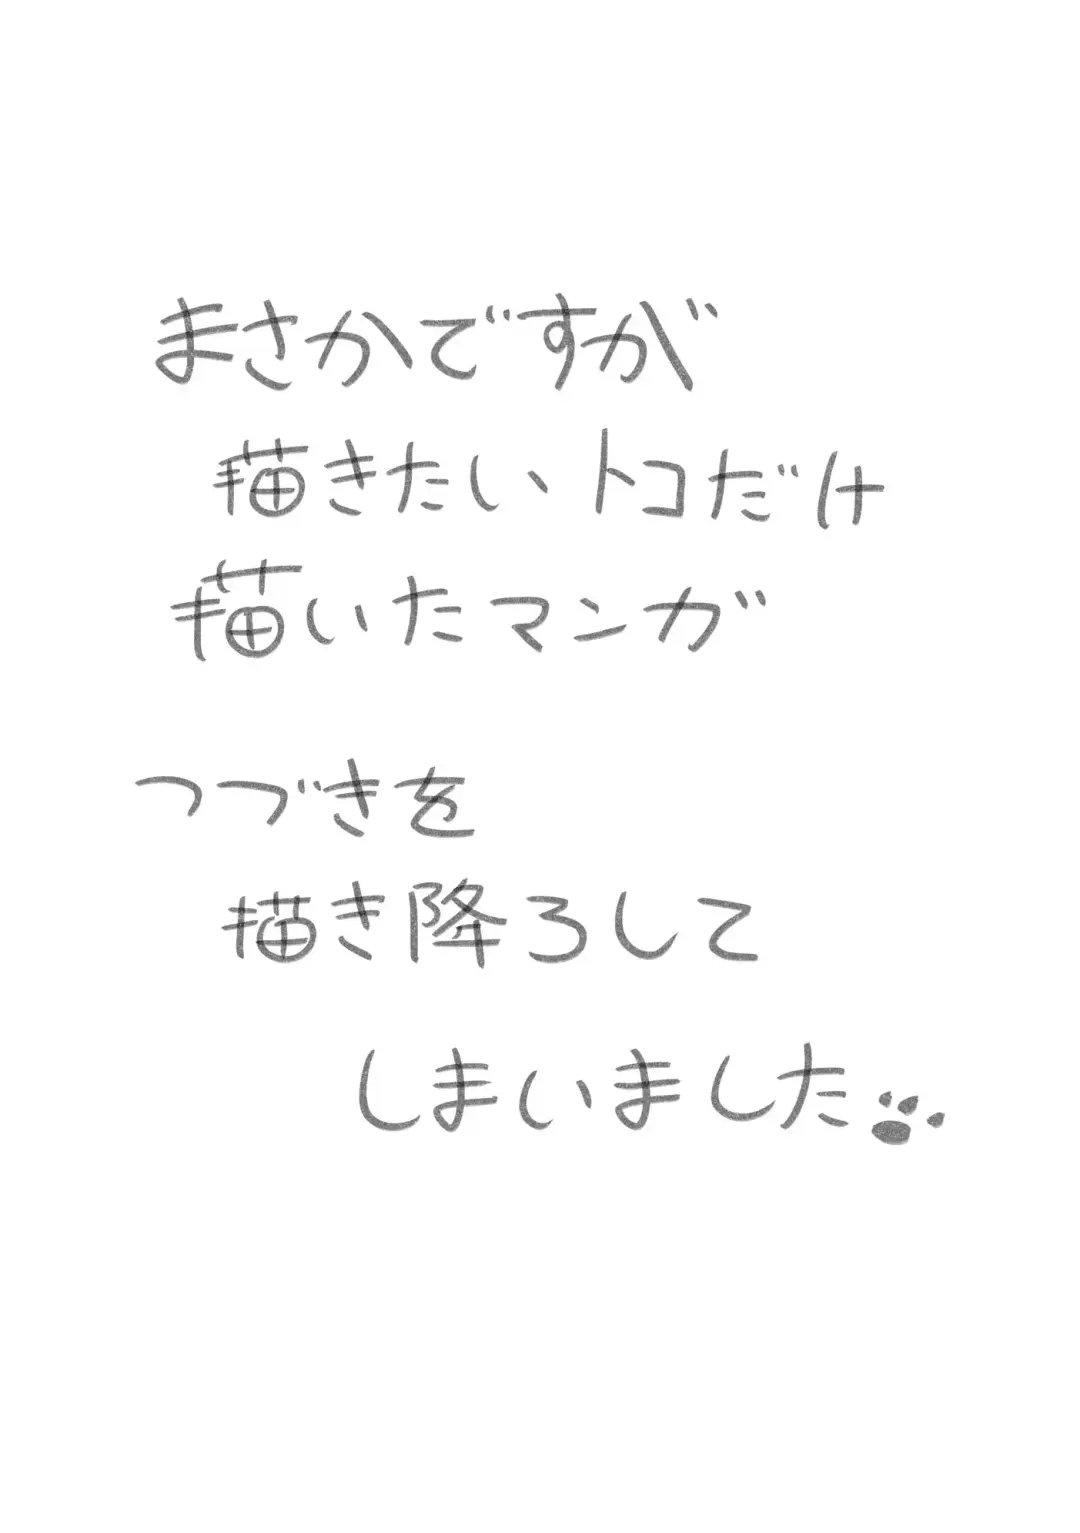 まさかですが
描きたいトコだけ
描いたマンガ
つづきを
描き降ろして
しまいました